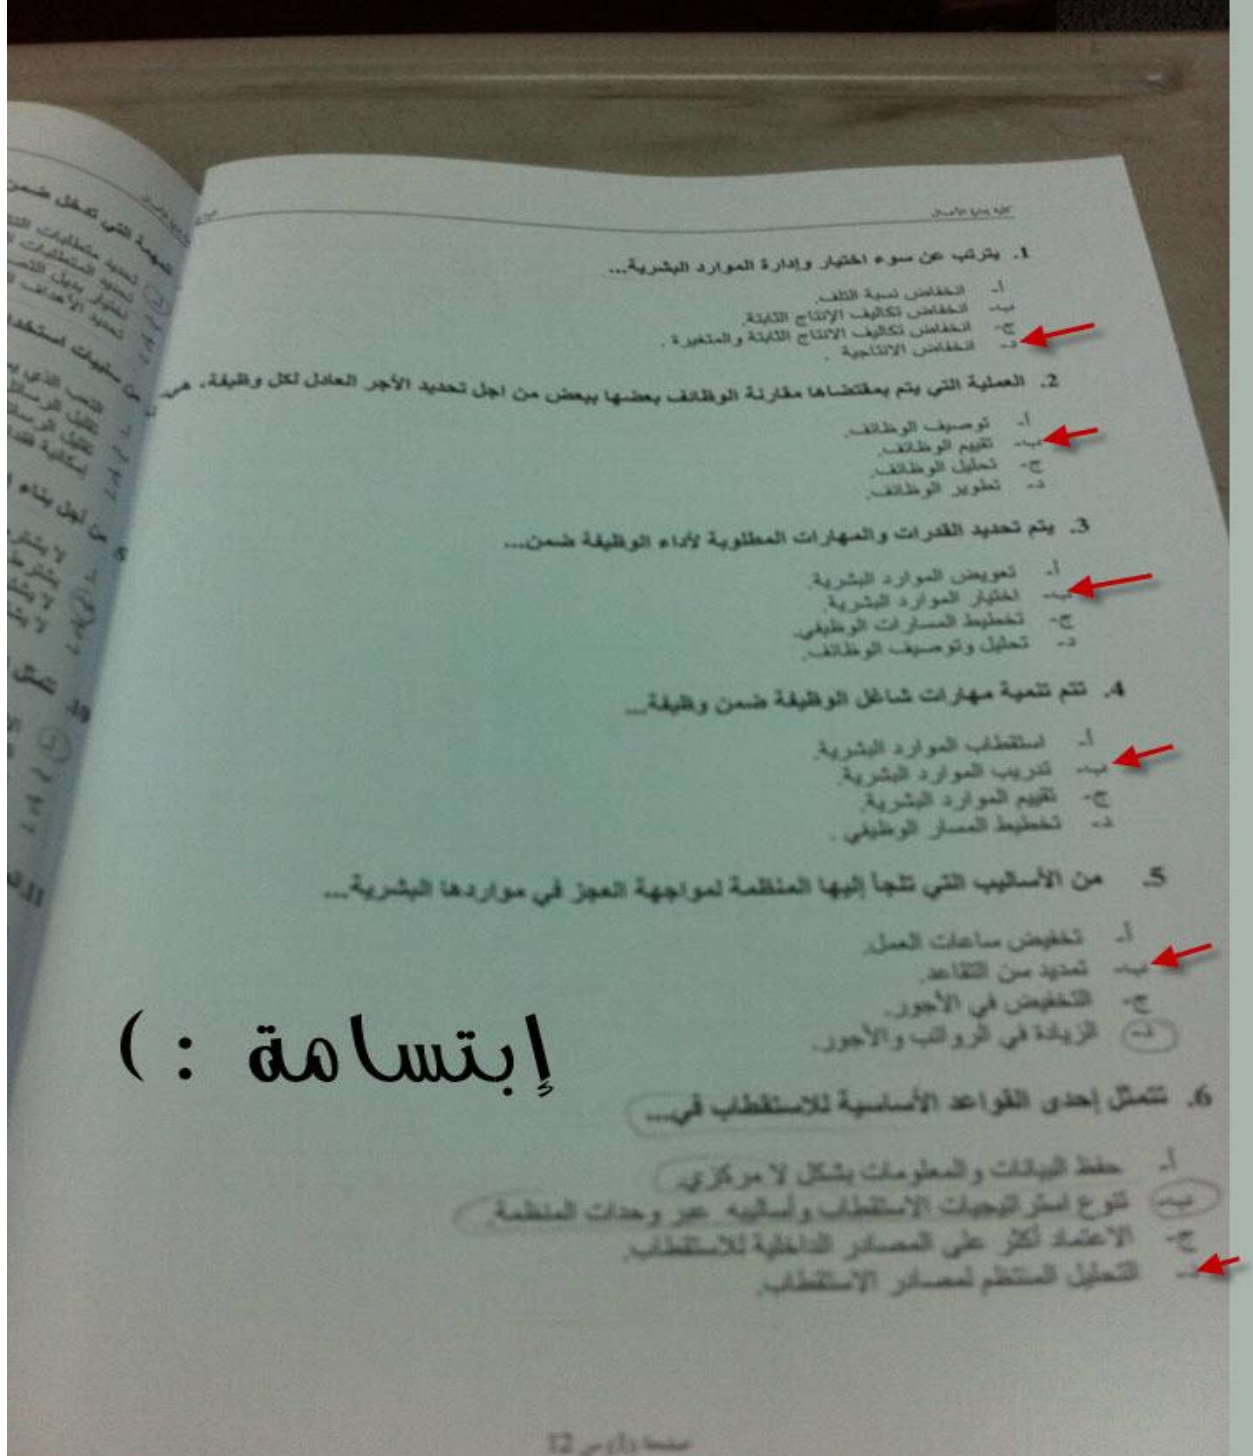 كلية إدارة الأعمال
1. يترتب عن سوء اختيار وإدارة الموارد البشرية...
أ- انخفاض نسبة التلف.
ب- انخفاض تكاليف الإنتاج الثابتة.
ج- انخفاض تكاليف الانتاج الثابتة والمتغيرة .
د- انخفاض الانتاجية .
2. العملية التي يتم بمقتضاها مقارنة الوظائف بعضها ببعض من اجل تحديد الأجر العادل لكل وظيفة، هي
أ- توصيف الوظائف.
ب- تقييم الوظائف.
ج- تحليل الوظائف.
د- تطوير الوظائف.
3. يتم تحديد القدرات والمهارات المطلوبة لأداء الوظيفة ضمن...
أ- تعويض الموارد البشرية.
ب- اختيار الموارد البشرية.
ج- تخطيط المسارات الوظيفي.
د- تحليل وتوصيف الوظائف.
4. تتم تنمية مهارات شاغل الوظيفة ضمن وظيفة...
أ- استقطاب الموارد البشرية.
ب- تدريب الموارد البشرية.
ج- تقييم الموارد البشرية.
د- تخطيط المسار الوظيفي .
5. من الأساليب التي تلجأ إليها المنظمة لمواجهة العجز في مواردها البشرية...
أ- تخفيض ساعات العمل.
ب- تمديد سن التقاعد.
ج- التخفيض في الأجور.
د- الزيادة في الرواتب والأجور.
إبتسامة : )
6. تتمثل إحدى القواعد الأساسية للاستقطاب في....
أ- حفظ البيانات والمعلومات بشكل لا مركزي.
ب- تنوع استراتيجيات الاستقطاب وأساليبه عبر وحدات المنظمة.
ج- الاعتماد أكثر على المصادر الداخلية للاستقطاب.
د- التحليل المنتظم لمصادر الاستقطاب.
صفحة (1) من 12